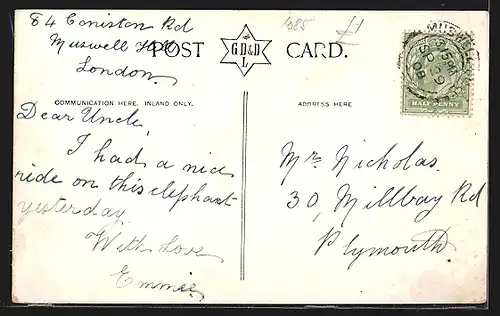 84 Coniston Rd
Muswell Hill
London.
POST CARD.
GD&D
L
1085 £1
COMMUNICATION HERE. INLAND ONLY.
ADDRESS HERE
Dear Uncle,
I had a nice
ride on this elephant
yesterday.
With Love
Emmie
Mr Nicholas.
30, Millbay Rd
Plymouth
MUSWELL
SP 9
08
HALF PENNY